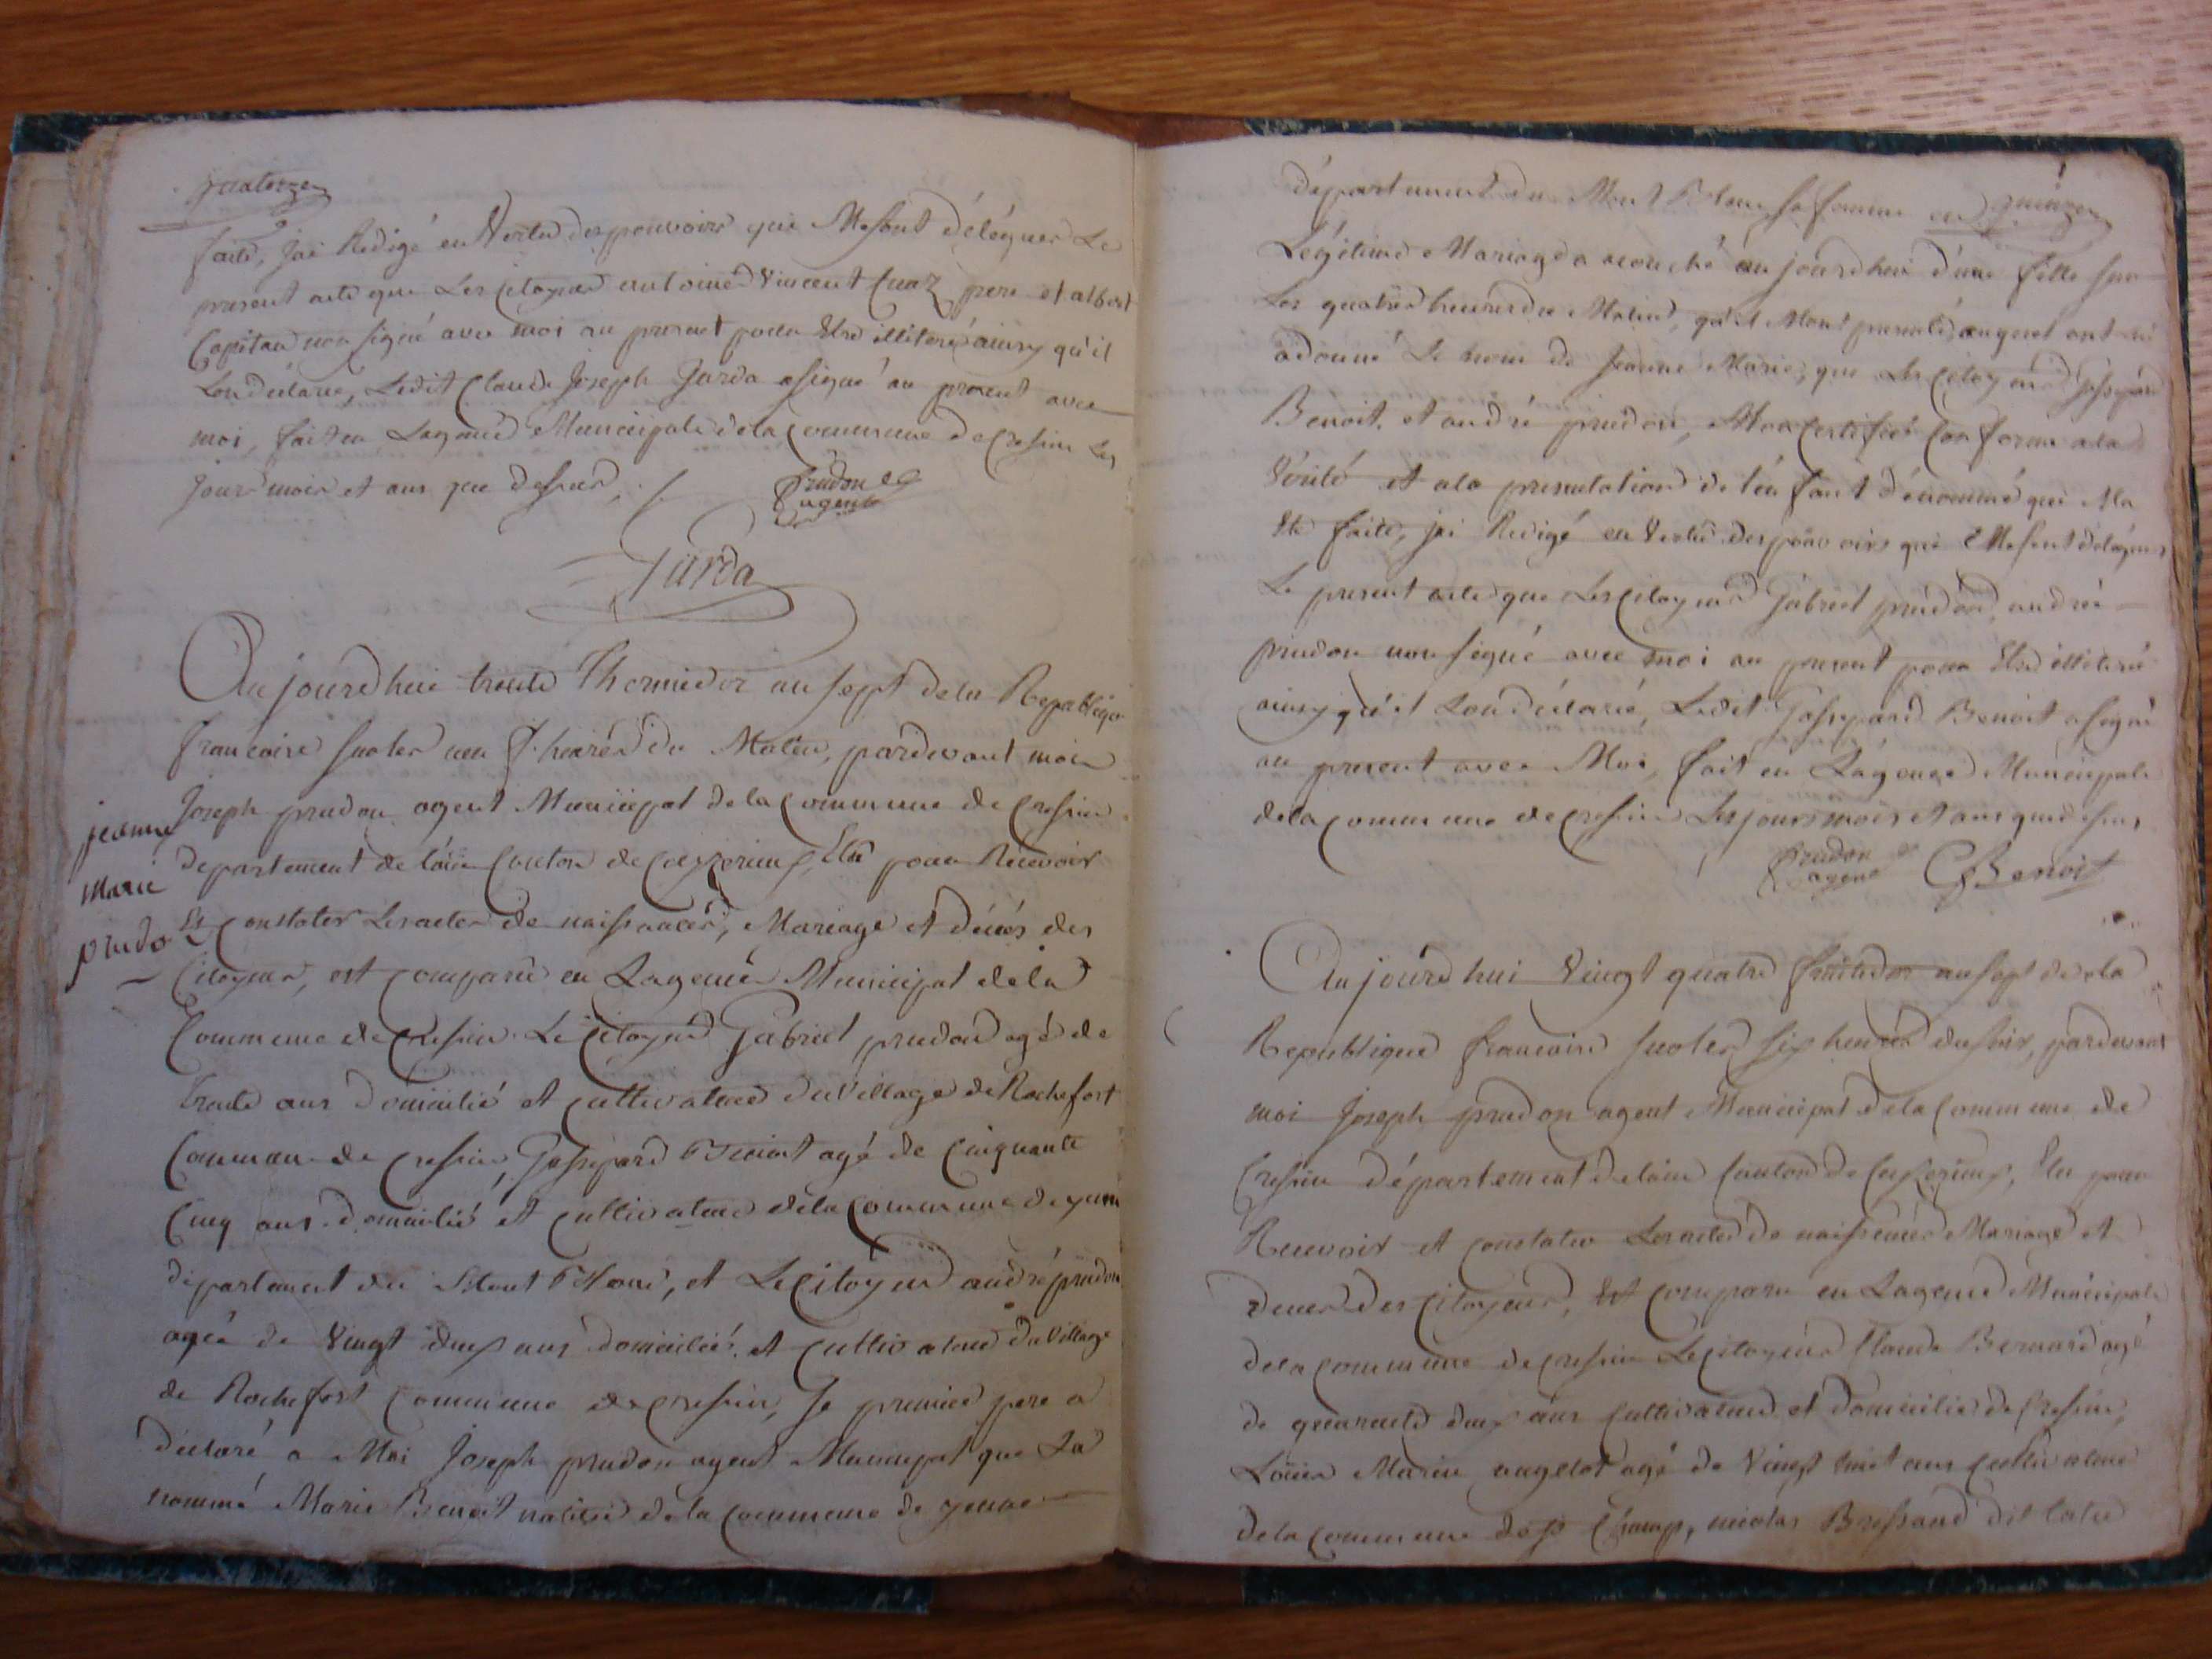 quatorze
faite, jai Redigé en Vertu des pouvoirs qui Me sont délèguer Le
present acte que Les citoyens antoine Vincent Cuaz pere et albert
Capitan non signé avec moi au present pour Etre illiteré ainsy qu'il
Lon déclaré, Ledit Claude Joseph Jarda a signé au present avec
moi, fait en Lagence Municipale de la Commune de Cressin Les
Jour mois et ans que dessus ./.
Prudon
agent
Jurda
Aujourdhui trente Thermidor an sept de la Republique
francoise sur les heures du Matin, pardevant moi
Joseph prudon agent Municipal de la Commune de Cressin
departement de l'ain Canton de Ceyzerieux, Elu pour Recevoir
Et Constater Les actes de naissances, Mariage et décés des
Citoyens, est comparu en Lagence Municipal de la
Commune de Cressin Le Citoyen Gabriel prudon agé de
trente ans domicilié et cultivateur du Village de Rochefort
Commune de Cressin, Gasspard Benoit agé de Cinquante
Cinq ans domicilié et cultivateur de la Commune de yenne
département du Mont Blanc, et Le Citoyen andré prudon
agée de Vingt deux ans domicilié et cultivateur du Village
de Rochefort Commune de Cressin, Le premier pere a
déclaré a Moi Joseph prudon agent Municipal que La
nommé Marie Benoit native de la Commune de yenne
jeanne
Marie
prudo
département du Mont Blanc sa femme en quinze
Légitime Mariage a acouché aujourdhui d'une fille sur
Les quatre heures du Matin, qu'il Mont presenté, auquel ont
a donné Le nom de Jeanne Marie, que Les Citoyens Gasspard
Benoit et andré prudon, Mon Certifié Conforme a la
Vérité et a la presentation de l'enfant dénommé qui Ma
Eté faite, jai Redigé en Vertu des pouvoirs qui Me sont délègués
Le present acte que Les Citoyens Gabriel prudon, andré
prudon non signé avec moi au present pour Etre illiteré
ainsy qu'il Lon déclaré, Ledit Gasspard Benoit a signé
au present avec Moi, fait en Lagence Municipale
de la Commune de Cressin Les jours mois et ans que dessus
Prudon
agent
Benoit
Aujourdhui Vingt quatre fructidor an sept de la
Republique francoise sur les six heures du soir, pardevant
moi Joseph prudon agent Municipal de la Commune de
Cressin département de lain Canton de Ceyzerieux, Elu pour
Recevoir et constater Les actes de naissances Mariage et
deces des Citoyens, Est comparu en Lagence Municipale
de la Commune de Cressin Le Citoyen Claude Bernard agé
de quarante deux ans cultivateur et domicilié de Cressin,
Louis Marin augelot agé de Vingt huit ans cultivateur
de la Commune de Champ, nicolas Bressand dit